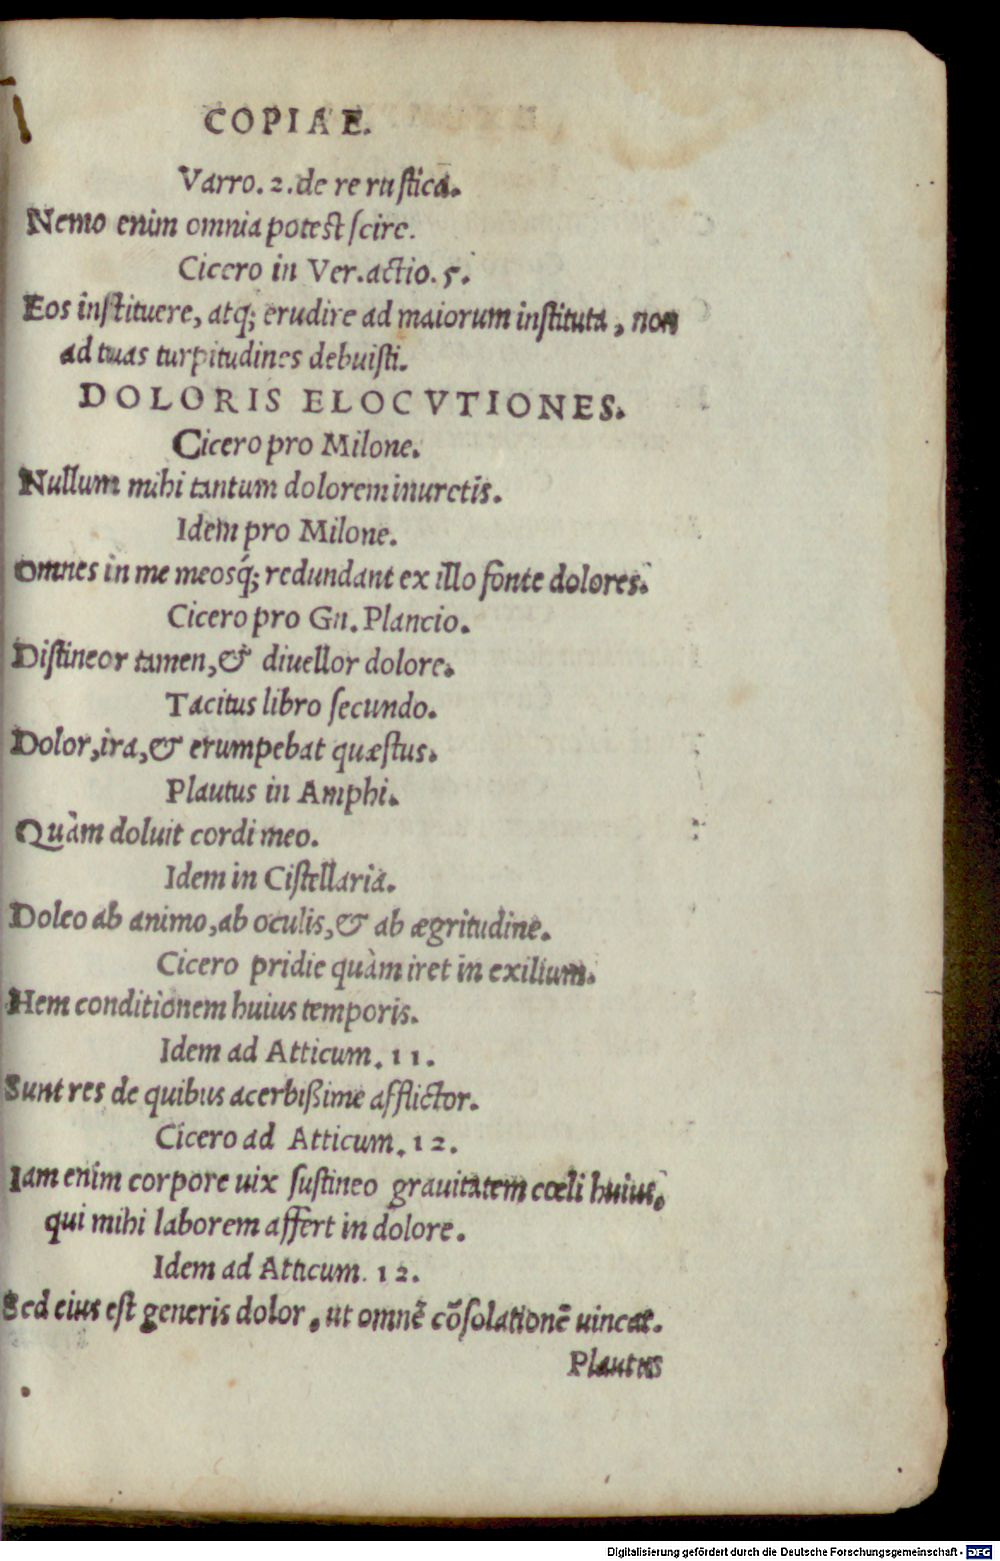 COPIAE.
Varro. 2. de re rustica.
Nemo enim omnia potest scire.
Cicero in Ver. actio. 5.
Eos instituere, atq; erudire ad maiorum instituta, non
ad tuas turpitudines debuisti.
DOLORIS ELOCVTIONES.
Cicero pro Milone.
Nullum mihi tantum dolorem inuretis.
Idem pro Milone.
Omnes in me meosq́; redundant ex illo fonte dolores.
Cicero pro Gn. Plancio.
Distineor tamen, & diuellor dolore.
Tacitus libro secundo.
Dolor, ira, & erumpebat quæstus.
Plautus in Amphi.
Quàm doluit cordi meo.
Idem in Cistellaria.
Doleo ab animo, ab oculis, & ab ægritudine.
Cicero pridie quàm iret in exilium.
Hem conditionem huius temporis.
Idem ad Atticum. 11.
Sunt res de quibus acerbißime afflictor.
Cicero ad Atticum. 12.
Iam enim corpore uix sustineo grauitatem cœli huius,
qui mihi laborem affert in dolore.
Idem ad Atticum. 12.
Sed eius est generis dolor, ut omnē cōsolationē uincat.
Plautus
Digitalisierung gefördert durch die Deutsche Forschungsgemeinschaft - DFG